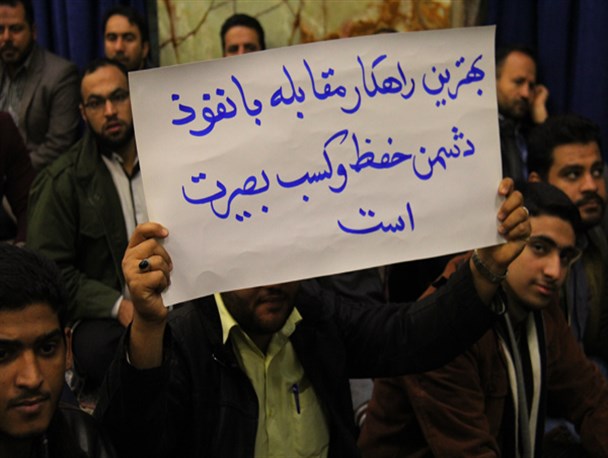 بهترین راهکار مقابله با نفوذ
دشمن حفظ و کسب بصیرت
است